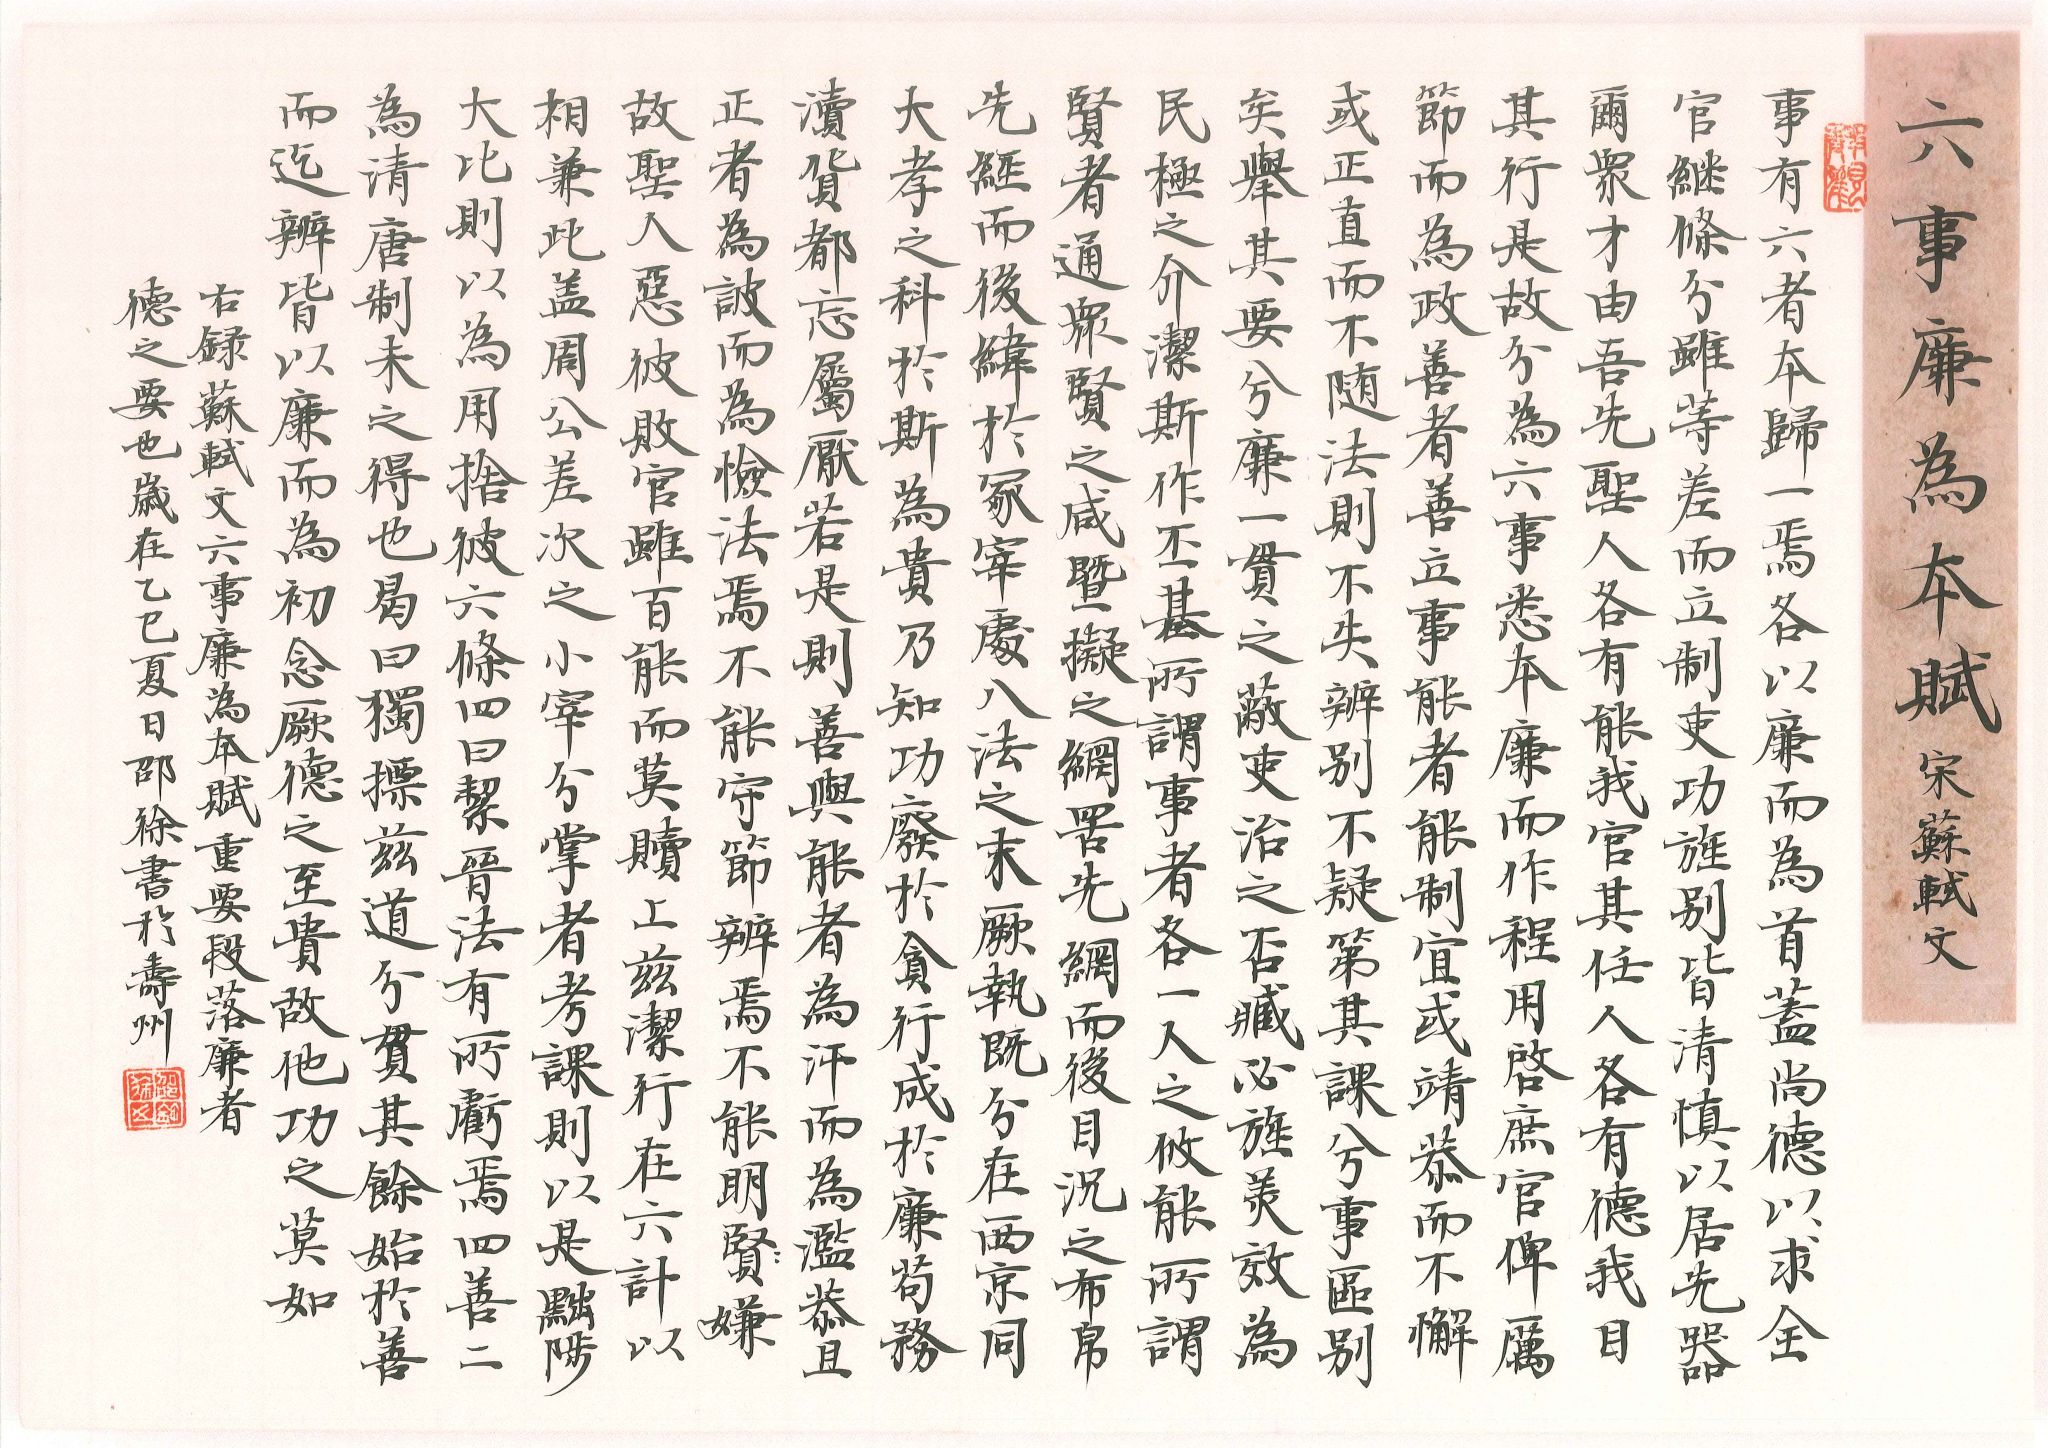 六事廉為本賦 宋蘇軾文
事有六者本歸一焉各以廉而為首蓋尚德以求全
官継條分雖等差而立制吏功旌别皆清慎以居先器
爾衆才由吾先聖人各有能我官其任人各有德我目
其行是故分為六事悉本廉而作程用啓庶官俾厲
節而為政善者善立事能者能制宜或靖恭而不懈
或正直而不随法則不失辨别不疑第其課兮事區别
矣舉其要兮廉一貫之蔽吏治之否臧必旌美效為
民極之介潔斯作丕基所謂事者各一人之攸能所謂
賢者通衆賢之咸暨擬之網罟先綱而後目況之布帛
先經而後緯於冢宰處八法之末厥執既分在西京同
大孝之科於斯為貴乃知功廢於貪行成於廉苟務
瀆貨都忘屬厭若是則善與能者為汗而為濫恭且
正者為詖而為憸法焉不能守節辨焉不能明賢嫌
故聖人惡彼敗官雖百能而莫贖上兹潔行在六計以
相兼此盖周公差次之小宰分掌者考課則以是黜陟
大比則以為用捨彼六條四曰絜晉法有所虧焉四善二
為清唐制未之得也曷曰獨摽兹道分貫其餘始於善
而迄辨皆以廉而為初念厥德之至貴故他功之莫如
右録蘇軾文六事廉為本賦重要段落廉者
德之要也歲在乙巳夏日邵徐書於壽州